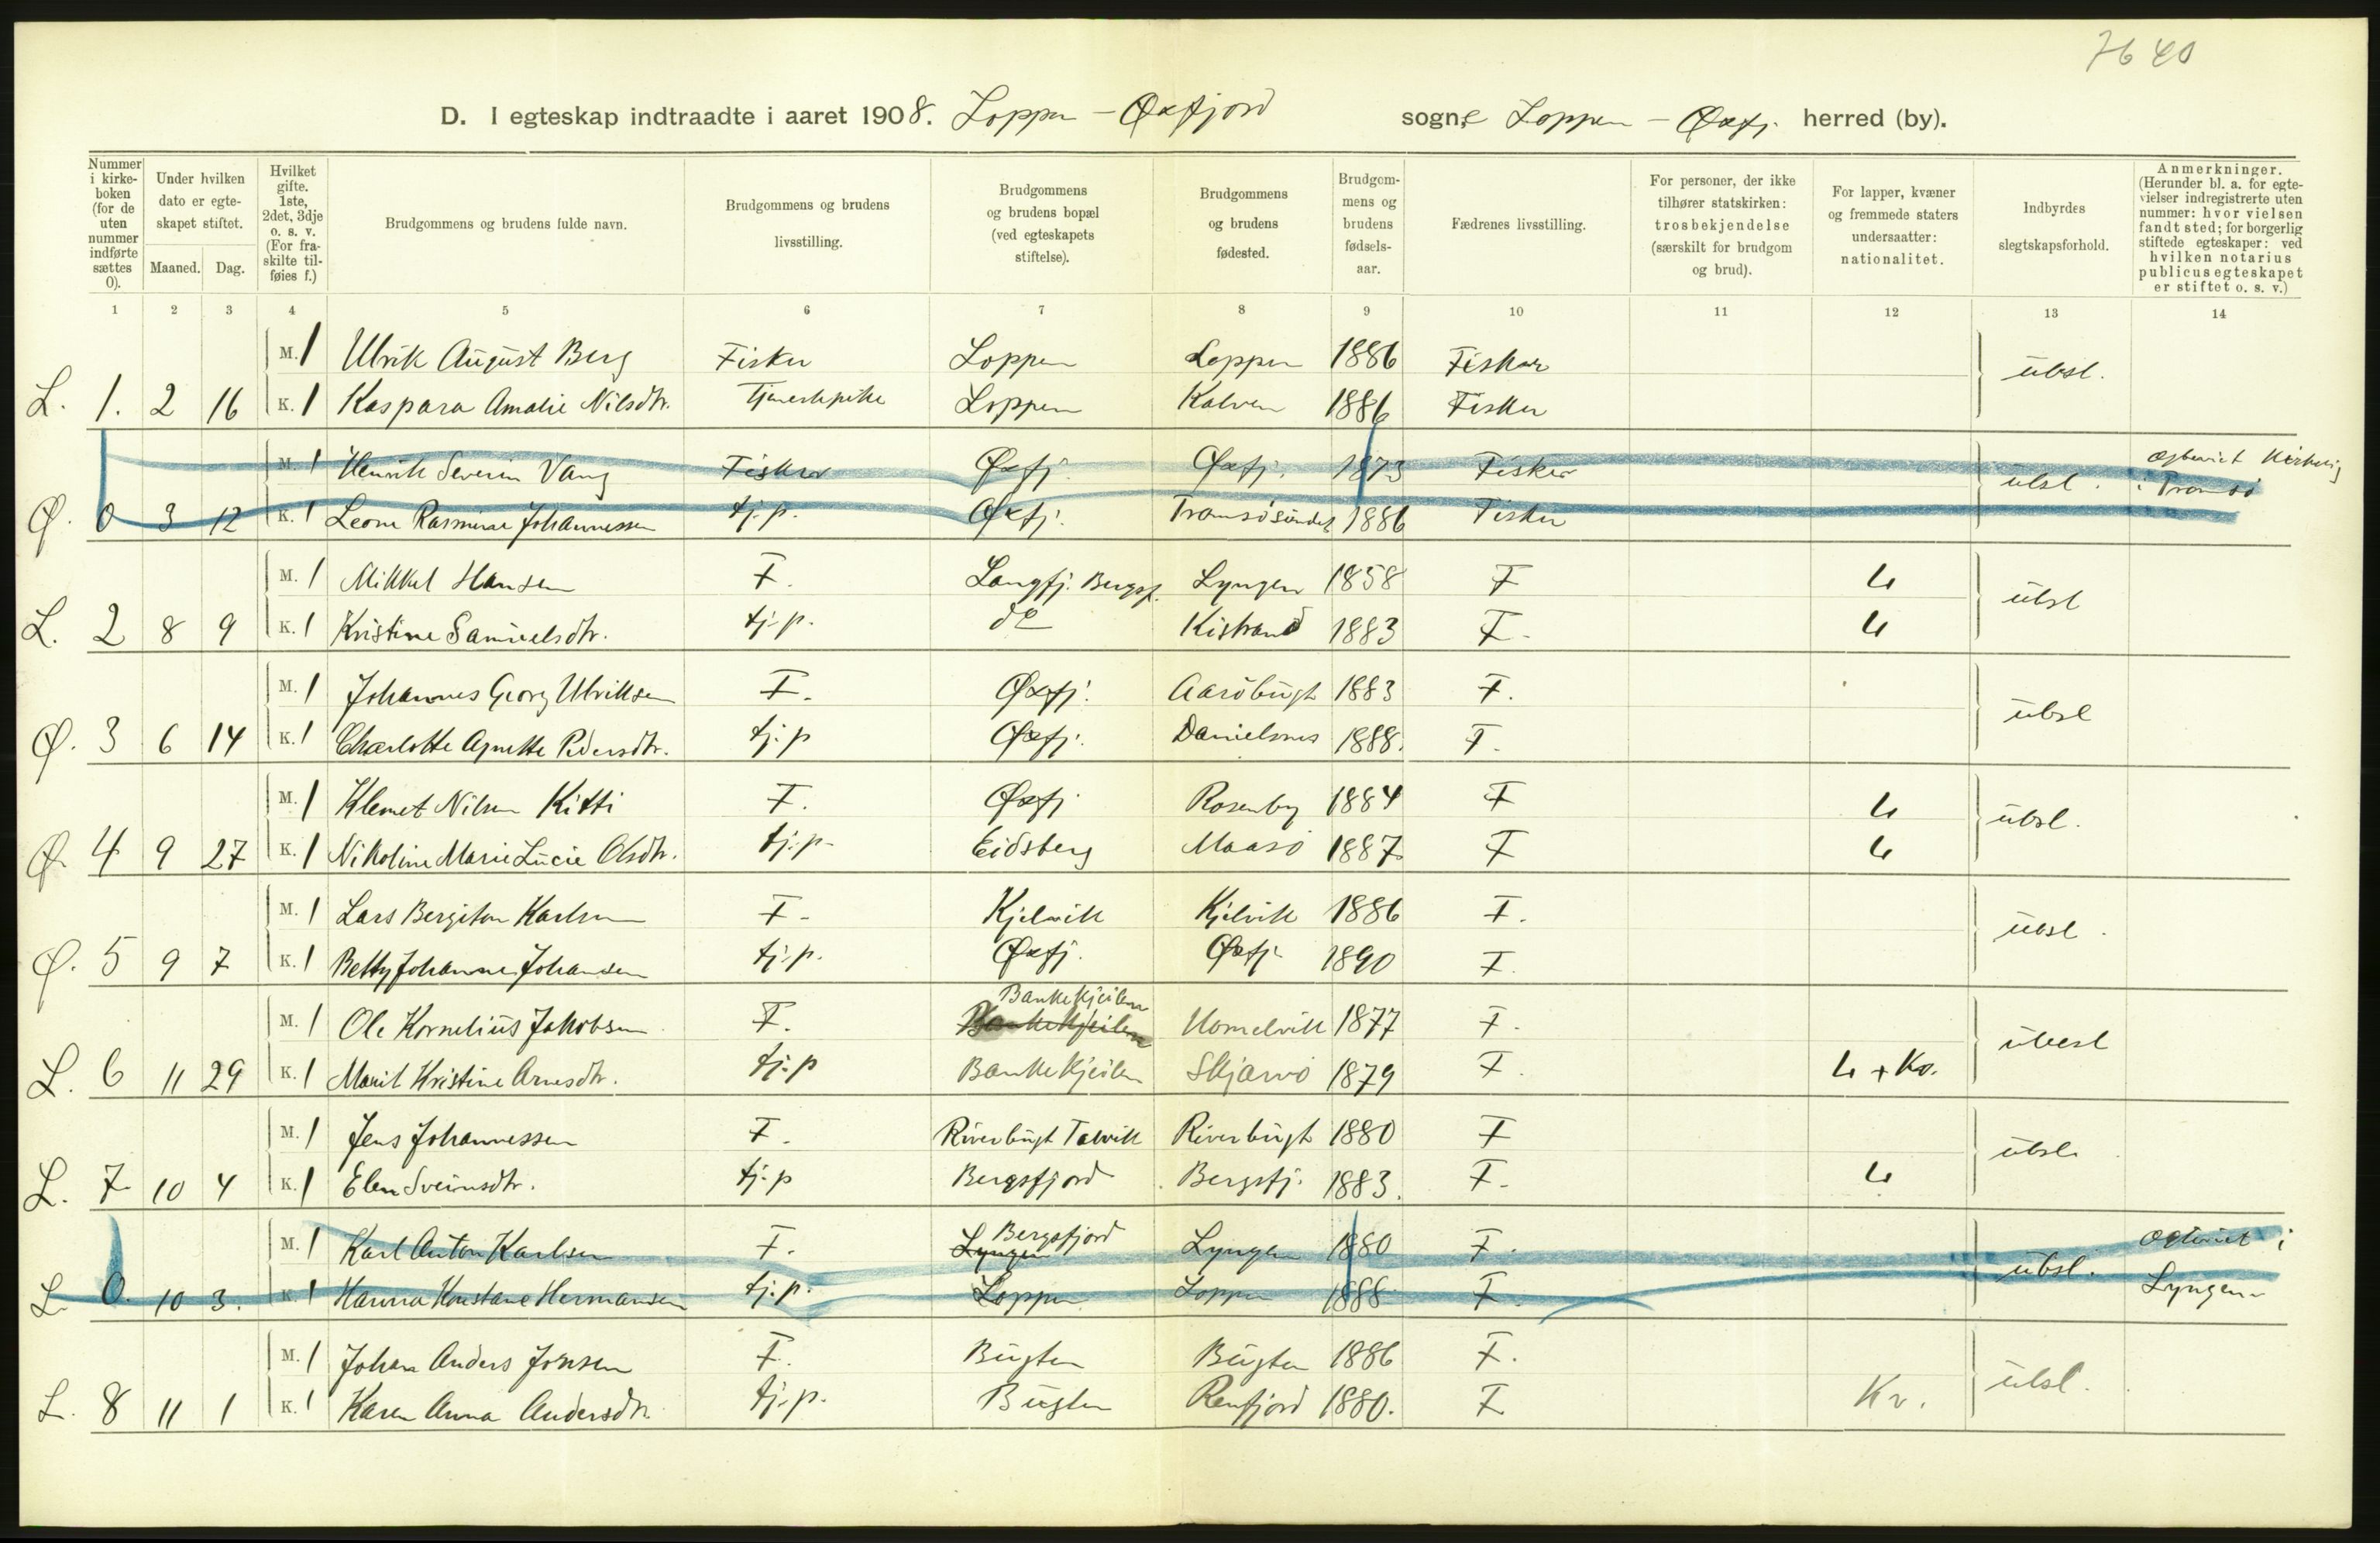 7640
D. I egteskap indtraadte i aaret 1908. Loppen - Øxfjord sogne Loppen - Øxfj. herred (by).
Nummer i kirke-boken (for de uten nummer indførte sættes 0).
Under hvilken dato er egte-skapet stiftet.
Maaned. Dag.
Hvilket gifte. 1ste, 2det, 3dje o. s. v. (For fra-skilte til-føies f.)
Brudgommens og brudens fulde navn.
Brudgommens og brudens livsstilling.
Brudgommens og brudens bopæl (ved egteskapets stiftelse).
Brudgommens og brudens fødested.
Brudgom-mens og brudens fødsels-aar.
Fædrenes livsstilling.
For personer, der ikke tilhører statskirken: trosbekjendelse (særskilt for brudgom og brud).
For lapper, kvæner og fremmede staters undersaatter: nationalitet.
Indbyrdes slegtskapsforhold.
Anmerkninger. (Herunder bl. a. for egte-vielser indregistrerte uten nummer: hvor vielsen fandt sted; for borgerlig stiftede egteskaper: ved hvilken notarius publicus egteskapet er stiftet o. s. v.)
1 2 3 4 5 6 7 8 9 10 11 12 13 14
M. 1 Ulrik August Berg Fisker Loppen Loppen 1886 Fisker ubsl.
L. 1. 2 16 K. 1 Kaspara Amalie Nilsdtr. Tjenestepike Loppen Kalven 1886 Fisker
M. 1 Henrik Severin Vang Fisker Øxfj. Øxfj. 1873 Fisker ubsl. Egteviet Kirkelig
Ø. 0 3 12 K. 1 Leone Rasmine Johannessen tj.p. Øxfj. Tromsøsundet 1886 Fisker i Tromsø
M. 1 Mikkel Hansen F. Langfj. Bergsf. Lyngen 1858 F L ubsl
L. 2 8 9 K. 1 Kristine Samuelsdtr. tj.p. do Kistrand 1883 F. L
M. 1 Johannes Georg Ulriksen F. Øxfj. Aarøbugt 1883 F. ubsl
Ø. 3 6 14 K. 1 Charlotte Agnette Pedersdtr. tj.p Øxfj. Danielsnes 1888. F.
M. 1 Klemet Nilsen Kitti F. Øxfj Rosenby 1884 F L ubsl.
Ø. 4 9 27 K. 1 Nikoline Marie Lucie Olsdtr. tj.p. Eidsberg Maasø 1887 F L
M. 1 Lars Bergiton Karlsen F. Kjelvik Kjelvik 1886 F. ubsl.
Ø. 5 9 7 K. 1 Betty Johanne Johansen tj.p. Øxfj. Øxfj. 1890 F.
Bankekjeilen
M. 1 Ole Kornelius Jakobsen F. Bankekjeilen Komelvik 1877 F. ubesl
L. 6 11 29 K. 1 Marit Kristine Arnesdtr. tj.p Bankekjeilen Skjærvø 1879 F. L + Kv.
M. 1 Jens Johannessen F. Riverbugt Talvik Riverbugt 1880 F ubsl.
L. 7 10 4 K. 1 Elen Sveinsdtr. tj.p Bergsfjord Bergsfj. 1883. F. L
Bergsfjord
M. 1 Karl Anton Karlsen F. Lyngen Lyngen 1880 F. ubsl. Egteviet i
L. 0. 10 3. K. 1 Hanna Konstane Hermansen tj.p. Loppen Loppen 1888 F. Lyngen
M. 1 Johan Anders Jonsen F. Bugten Bugten 1886 F. ubsl.
L. 8 11 1 K. 1 Karen Anna Andersdtr. tj.p. Bugten Renfjord 1880. F. Kv.